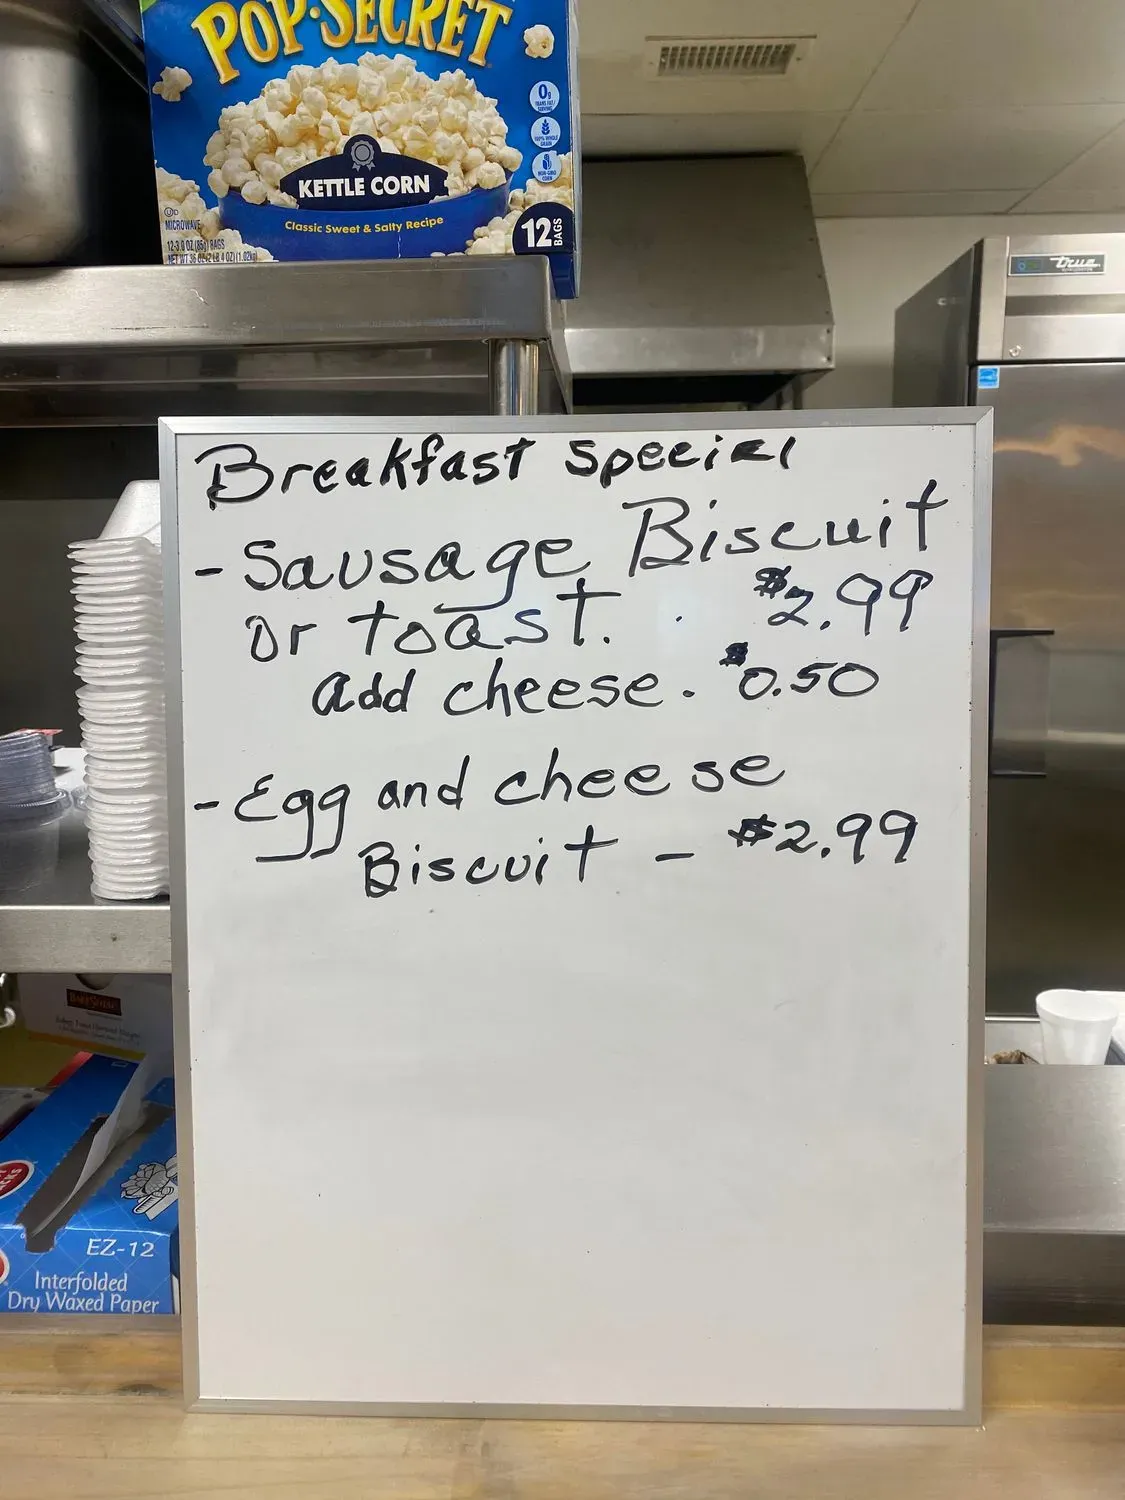 POP·SECRET
0g
TRANS FAT/
SERVING
100% WHOLE
GRAIN
NON-GMO
CORN
KETTLE CORN
Classic Sweet & Salty Recipe
MICROWAVE
12-3.0 OZ (85g) BAGS
NET WT 36 OZ (2 LB 4 OZ) (1.02kg)
12 BAGS
True
Breakfast special
- Sausage Biscuit
or toast. . $2.99
add cheese. $0.50
- Egg and cheese
Biscuit - $2.99
EZ-12
Interfolded
Dry Waxed Paper